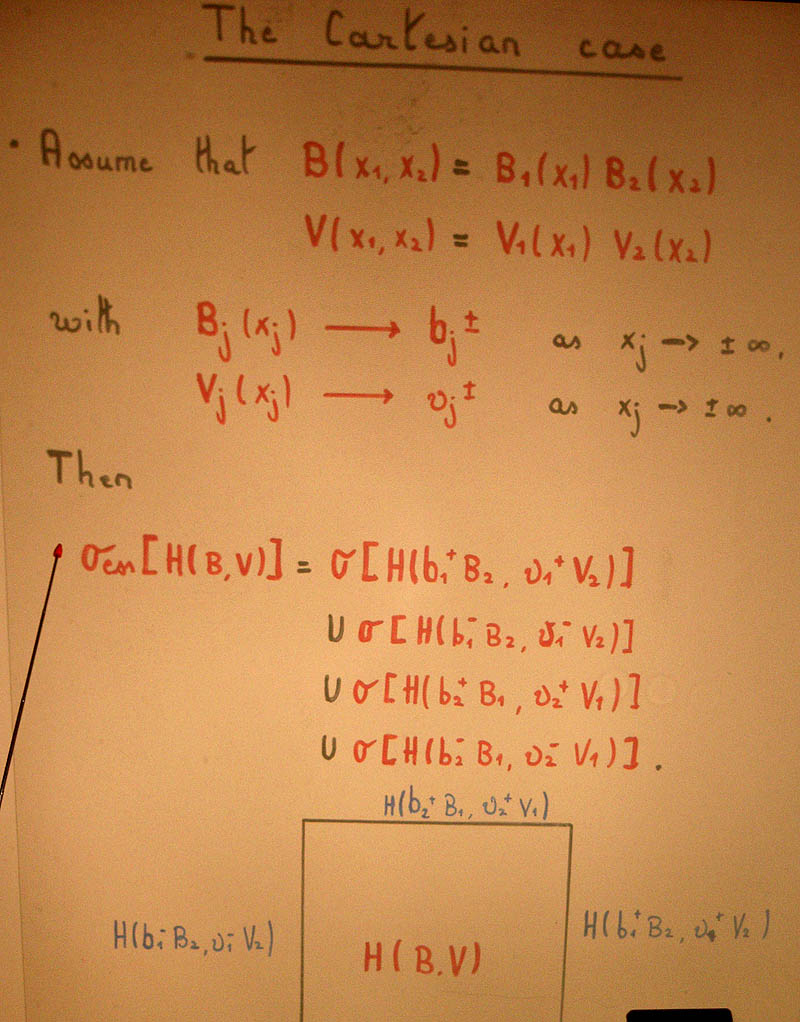 The Cartesian case
• Assume that B(x₁, x₂) = B₁(x₁) B₂(x₂)
V(x₁, x₂) = V₁(x₁) V₂(x₂)
with Bⱼ(xⱼ) ⟶ bⱼ± as xⱼ → ±∞,
Vⱼ(xⱼ) ⟶ υⱼ± as xⱼ → ±∞.
Then
σess[H(B,V)] = σ[H(b₁⁺B₂, υ₁⁺V₂)]
∪ σ[H(b₁⁻B₂, υ₁⁻V₂)]
∪ σ[H(b₂⁺B₁, υ₂⁺V₁)]
∪ σ[H(b₂⁻B₁, υ₂⁻V₁)].
H(b₂⁺B₁, υ₂⁺V₁)
H(b₁⁻B₂, υ₁⁻V₂)
H(B,V)
H(b₁⁺B₂, υ₁⁺V₂)